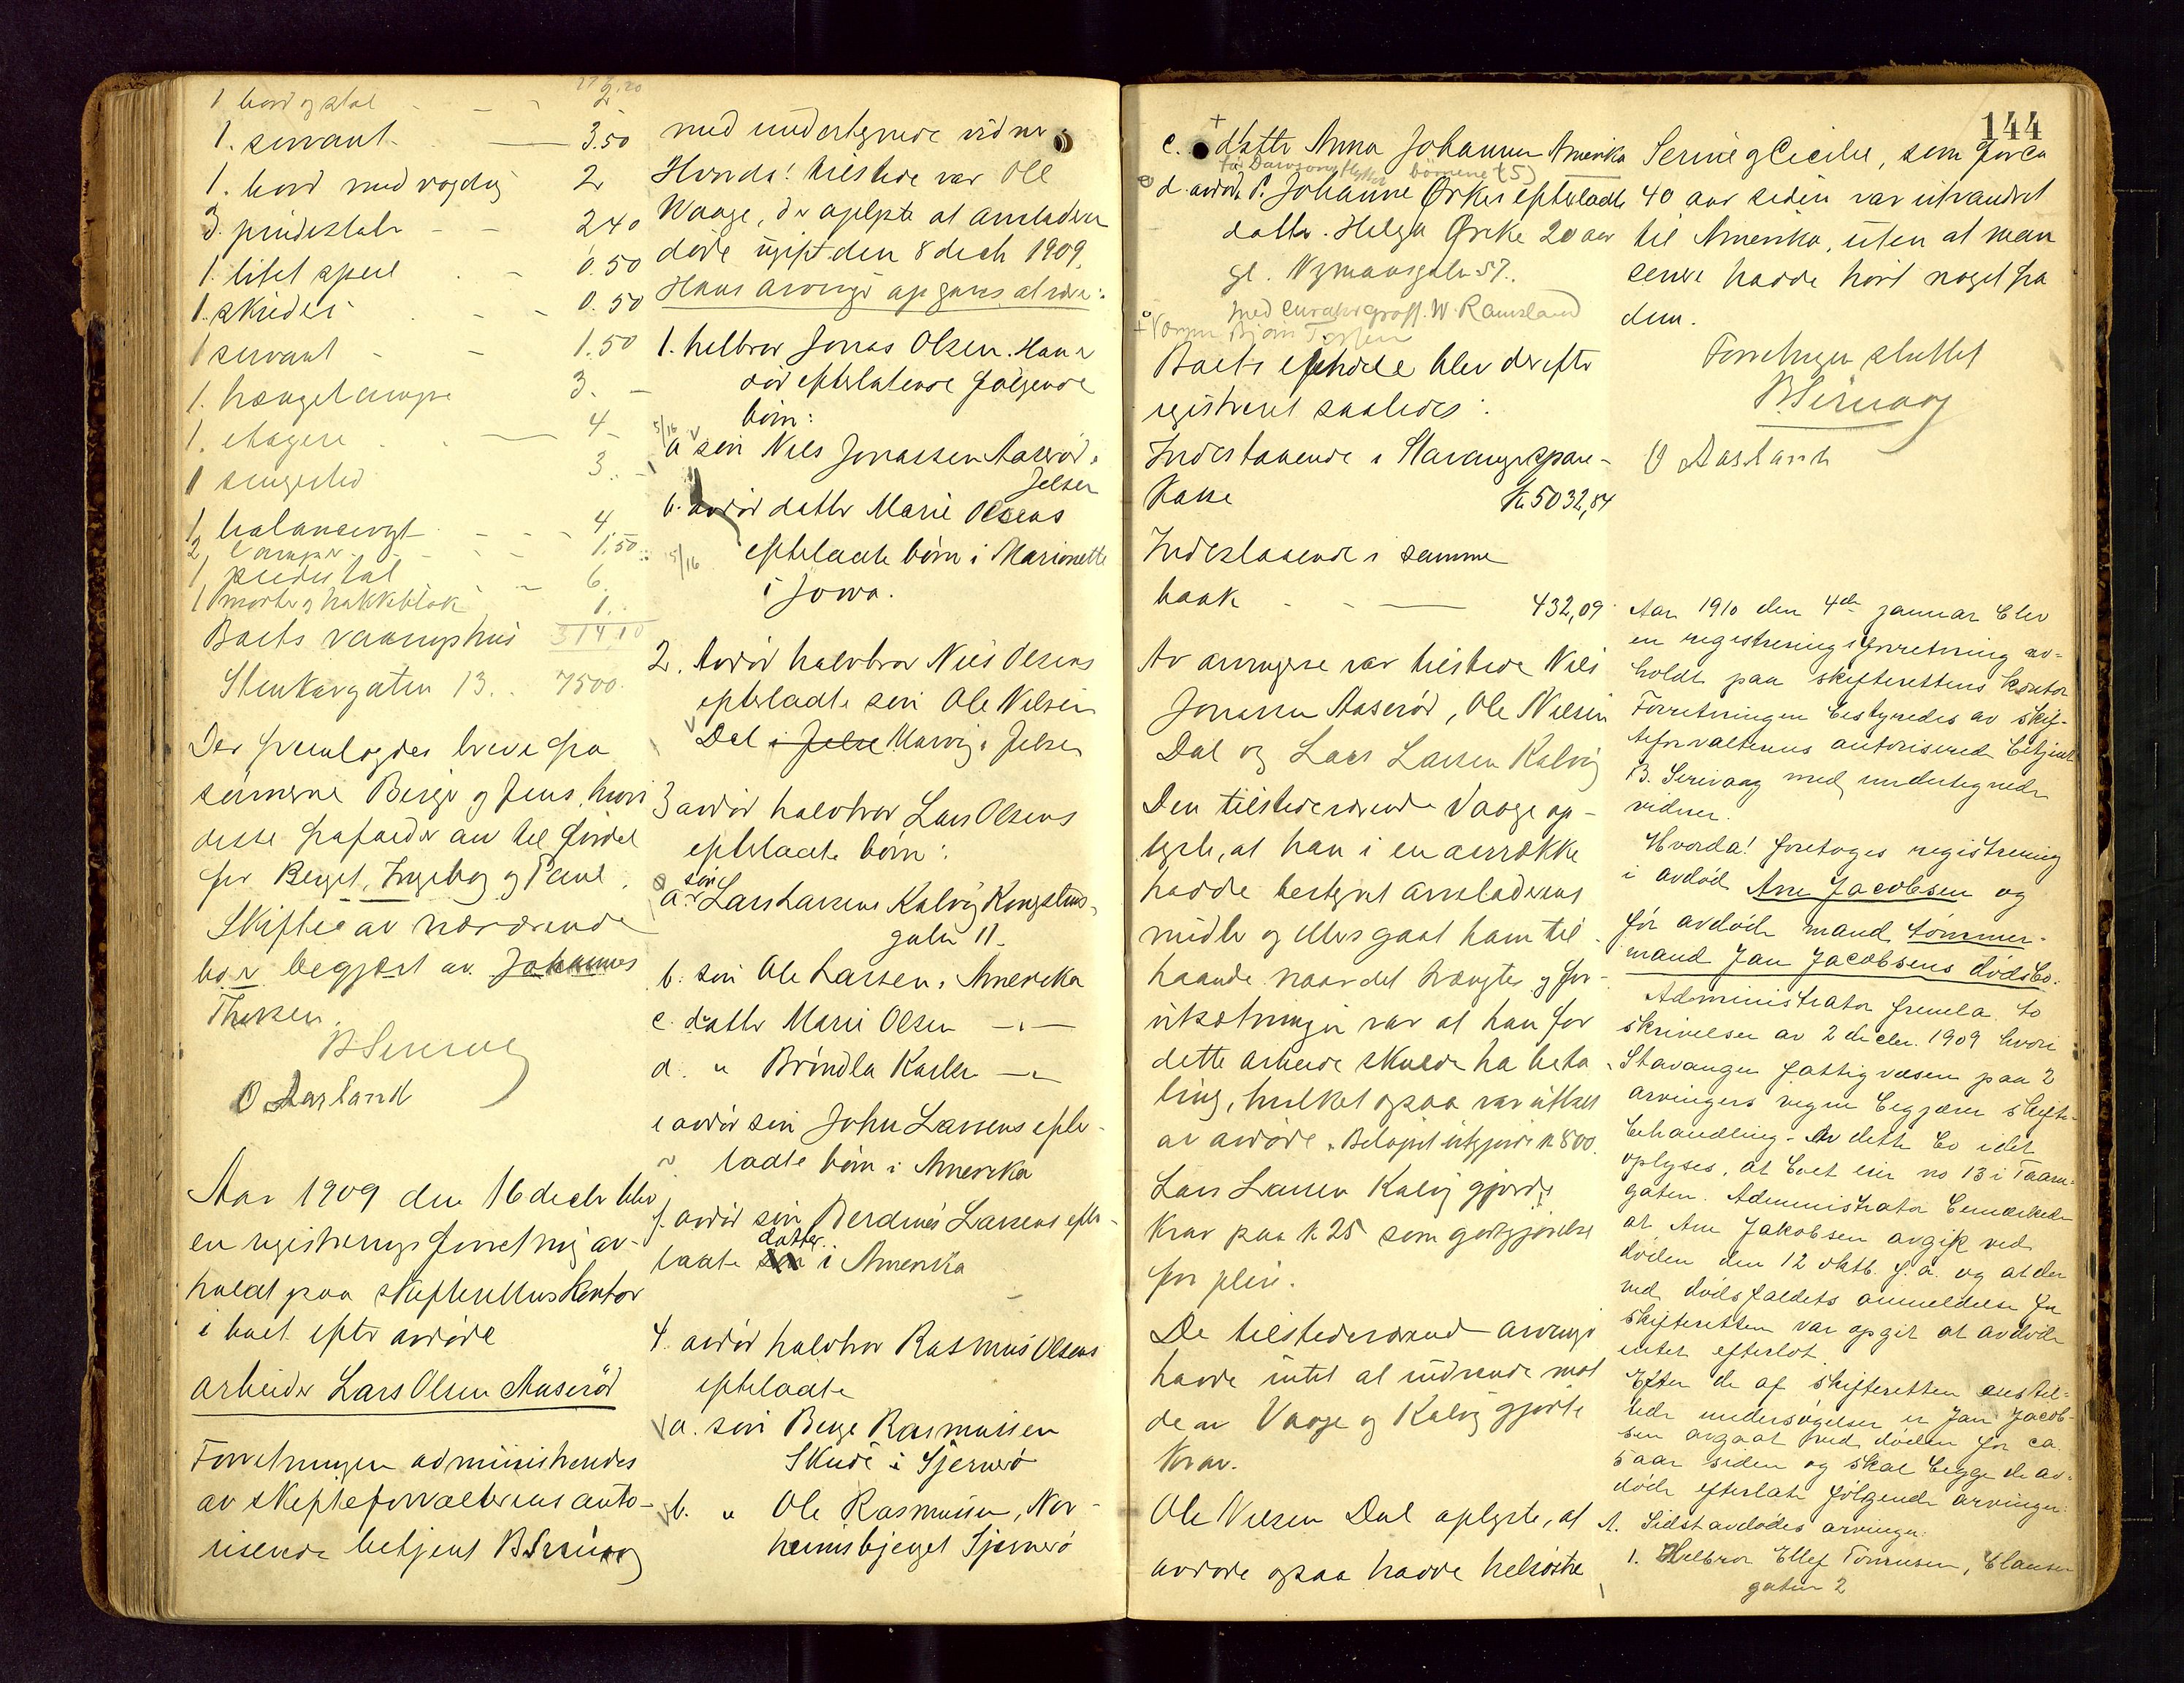 1 bord og stol - - - 2
1. servant - — 3.50
1. bord med voxdug 2
3. pindestole - - 2 40
1. litet speil - - 0.50
1. skilderi - - 0.50
1 servant - - 1.50
1. hængelampe 3. -
1. etagere - — 4 -
1 sengested 3. -
1 balancevægt - - - 4
2 lamper - - - 1.50
1 piedestal - - 6.
1 morter og hakkeblok 1.
Boets vaaningshus 314 10
Stenkargaten 13. . 7500.
Der fremlagdes breve fra
sønnerne Berge og Jens, hvori
disse frafalder arv til fordel
for Berget, Ingeborg og Paul.
Skifte av nærværende
bo er begjært av Johannes
Thorsen.
B Serivaag
O Aarland
Aar 1909 den 16 decbr blev
en registreringsforretning av-
holdt paa skifterettens kontor
i boet efter avdøde
arbeider Lars Olsen Aaserød
Forretningen administreredes
av skifteforvalterens auto-
riserede betjent B Serivaag
med undertegnede vidner
Hvorda! tilstede var Ole
Vaage, der oplyste at arveladeren
døde ugift den 8 decb 1909.
Hans arvinger opgaves at være:
1. helbror Jonas Olsen. Han er
død efterlatende følgende
børn:
5/16
a søn Nils Jonassen Aaserød i
Jelse
b. avdød datter Marie Olsens
5/16 efterladte børn i Marionette
i Jowa.
2. Avdød halvbror Nils Olsens
efterladte søn Ole Nilsen
Dal i Jelse Marvig i Jelse
3 avdød halvbror Lars Olsens
efterladte børn:
søn
a. Lars Larsen Kalvig Kongstens-
gaten 11.
b. søn Ole Larsen i Amerika
c. datter Marie Olsen — " —
d. " Brøndla Karler — " —
e avdød søn John Larsens efter-
ladte børn i Amerika
f. avdød søn Berdines Larsens efter-
datter
ladte søn i Amerika
4. avdød halvbror Rasmus Olsens
efterladte
a. søn Berge Rasmussen
Skude i Sjernerø
b. " Ole Rasmussen, Nor-
heimsbjerget Sjernerø
144
c. datter Anna Johanne Amerika
børnene (5)
d. avdøde P. Johanne Ørkes efterladte
datter. Helga Ørke 20 aar
gl. Nymansgate 57.
med curator prof. W. Ramsland
Boets eiendele blev derefter
registreret saaledes:
Indestaaende i Stavanger Spare-
kasse Kr 5032,84
Indestaaende i samme
bank - - — 432,09
Av arvingene var tilstede Nils
Jonassen Aaserød, Ole Nilsen
Dal og Lars Larsen Kalvig
Den tilstedeværende Vaage op-
lyste, at han i en aarrække
hadde bestyret arveladerens
midler og ellers gaat ham til
haande naar det trængtes og for-
utsætningen var at han for
dette arbeide skulde ha beta-
ling, hvilket ogsaa var uttalt
av avdøde. Beløpet utgjorde k 800.
Lars Larsen Kalvig gjorde
krav paa k 25 som godtgjørelse
for pleie.
De tilstedeværende arvinger
havde intet at indvende mot
de av Vaage og Kalvig gjorte
krav.
Ole Nilsen Dal oplyste, at
avdøde ogsaa havde helsøstre
Serine og Cicilie, som for ca
40 aar siden var utvandret
til Amerika, uten at man
senere hadde hørt noget fra
dem.
Forretningen sluttet
B Serivaag
O Aarland
Aar 1910 den 4de januar blev
en registreringsforretning av-
holdt paa skifterettens kontor
Forretningen bestyredes av skif-
teforvalterens autoriserede betjent
B. Serivaag med undertegnede
vidner.
Hvorda! foretoges registrering
i avdøde Ane Jacobsen og
før avdøde mand tømmer-
mand Jan Jacobsens dødsbo.
Administrator fremla to
skrivelser av 2 decbr. 1909 hvori
Stavanger fattigvæsen paa 2
arvingers vegne begjærer skifte-
behandling. Av dette bo idet
oplyses, at boet eier no 13 i Taarn-
gaten. Administrator bemærkede
at Ane Jakobsen avgik ved
døden den 12 oktb. f. a. og at der
ved dødsfaldets anmeldelse for
skifteretten var opgit at avdøde
intet efterlot.
Efter de af skifteretten anstil-
lede undersøgelser er Jan Jacob-
sen avgaat ved døden for ca.
5 aar siden og skal begge de av-
døde efterlate følgende arvinger:
A. Sidst avdødes arvinger:
1. Helbror Ellef Tønnesen, Clausen
gaten 2